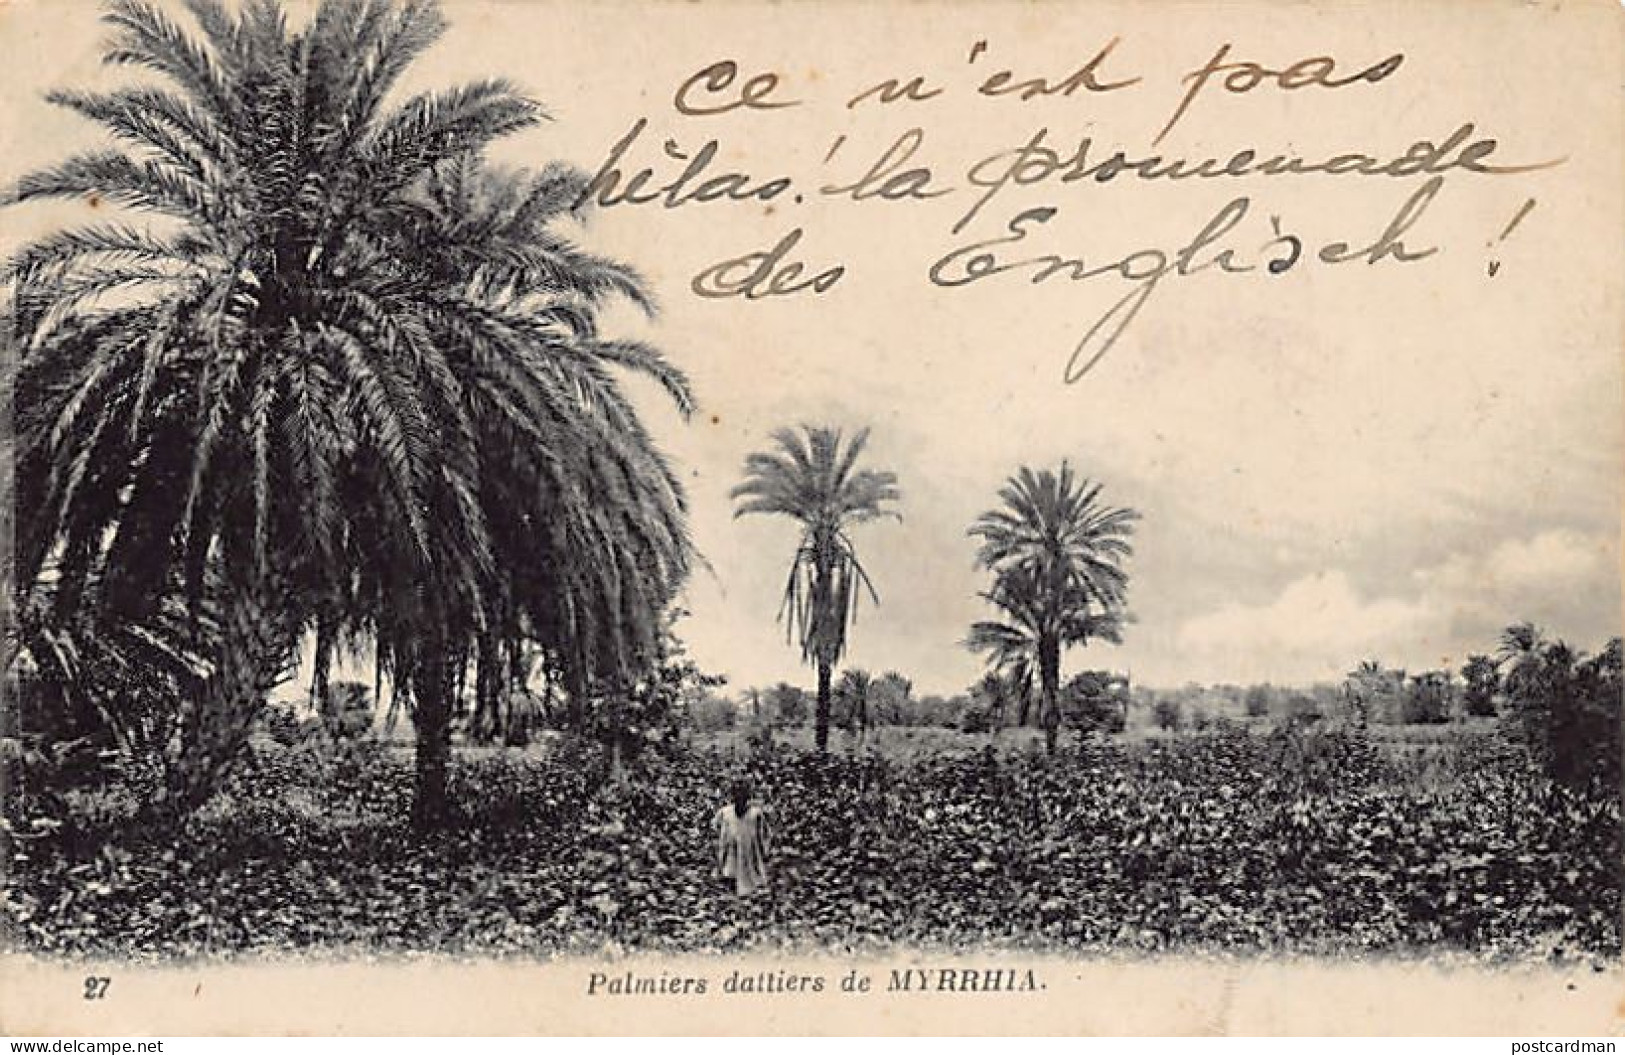 Ce n'est pas
hélas! la promenade
des Englisch!
27
Palmiers dattiers de MYRRHIA.
www.delcampe.net
postcardman